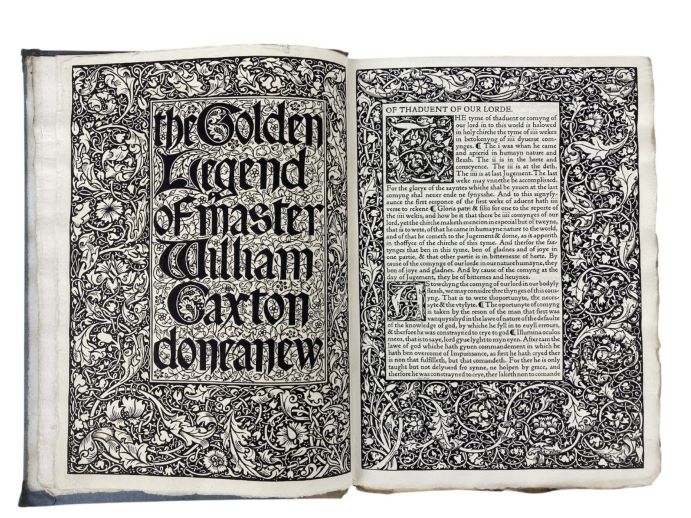 the Golden
Legend
of master
William
Caxton
done anew
OF THADUENT OF OUR LORDE.
THE tyme of thaduent or comyng of
our lord in to this world is halowed
in holy chirche the tyme of iiii wekes
in betokenyng of iiii dyuerse com-
ynges. ¶ The i was when he came
and apierid in humayn nature and
flessh. The ii is in the herte and
conscyence. The iii is at the deth.
The iiii is at last Jugement. The last
weke may vnnethe be accomplissed.
For the glorye of the sayntes whiche shal be yeuen at the last
comyng shal never ende ne fynysshe. And to this signyfy-
aunce the first responce of the first weke of aduent hath iiii
verse to rekene ¶ Gloria patri & filio for one to the reporte of
the iiii wekis, and how be it that there be iiii comynges of our
lord, yet the chirche maketh mencion in especial but of tweyne,
that is to wete, of that he came in humayne nature to the world,
and of that he cometh to the Jugement & dome, as it apperith
in thoffyce of the chirche of this tyme. And therfor the fas-
tynges that ben in this tyme, ben of gladnes and of joye in
one partie, & that other partie is in bitternesse of herte. By
cause of the comynge of our lorde in our nature humayne, they
ben of joye and gladnes. And by cause of the comyng at the
day of Jugement, they be of bitternes and heuynes.
AS towchyng the comyng of our lord in our bodyly
flessh, we may considere thre thynges of this com-
yng. That is to wete thoportunyte, the neces-
syte & the vtylyte. ¶ The oportunyte of comyng
is taken by the reson of the man that first was
vanquysshyd in the lawe of nature of the defaulte
of the knowledge of god, by whiche he fyll in to euyll errours,
& therfore he was constrayned to crye to god ¶ Illumina oculos
meos, that is to saye, lord gyue lyght to myn eyen. After cam the
lawe of god whiche hath gyuen commandement in which he
hath ben overcome of Impuissance, as first he hath cryed ther
is non that fulfilleth, but that comandeth. For ther he is only
taught but not delyuerd fro synne, ne holpen by grace, and
therfore he was constrayned to crye, ther lakketh non to comande